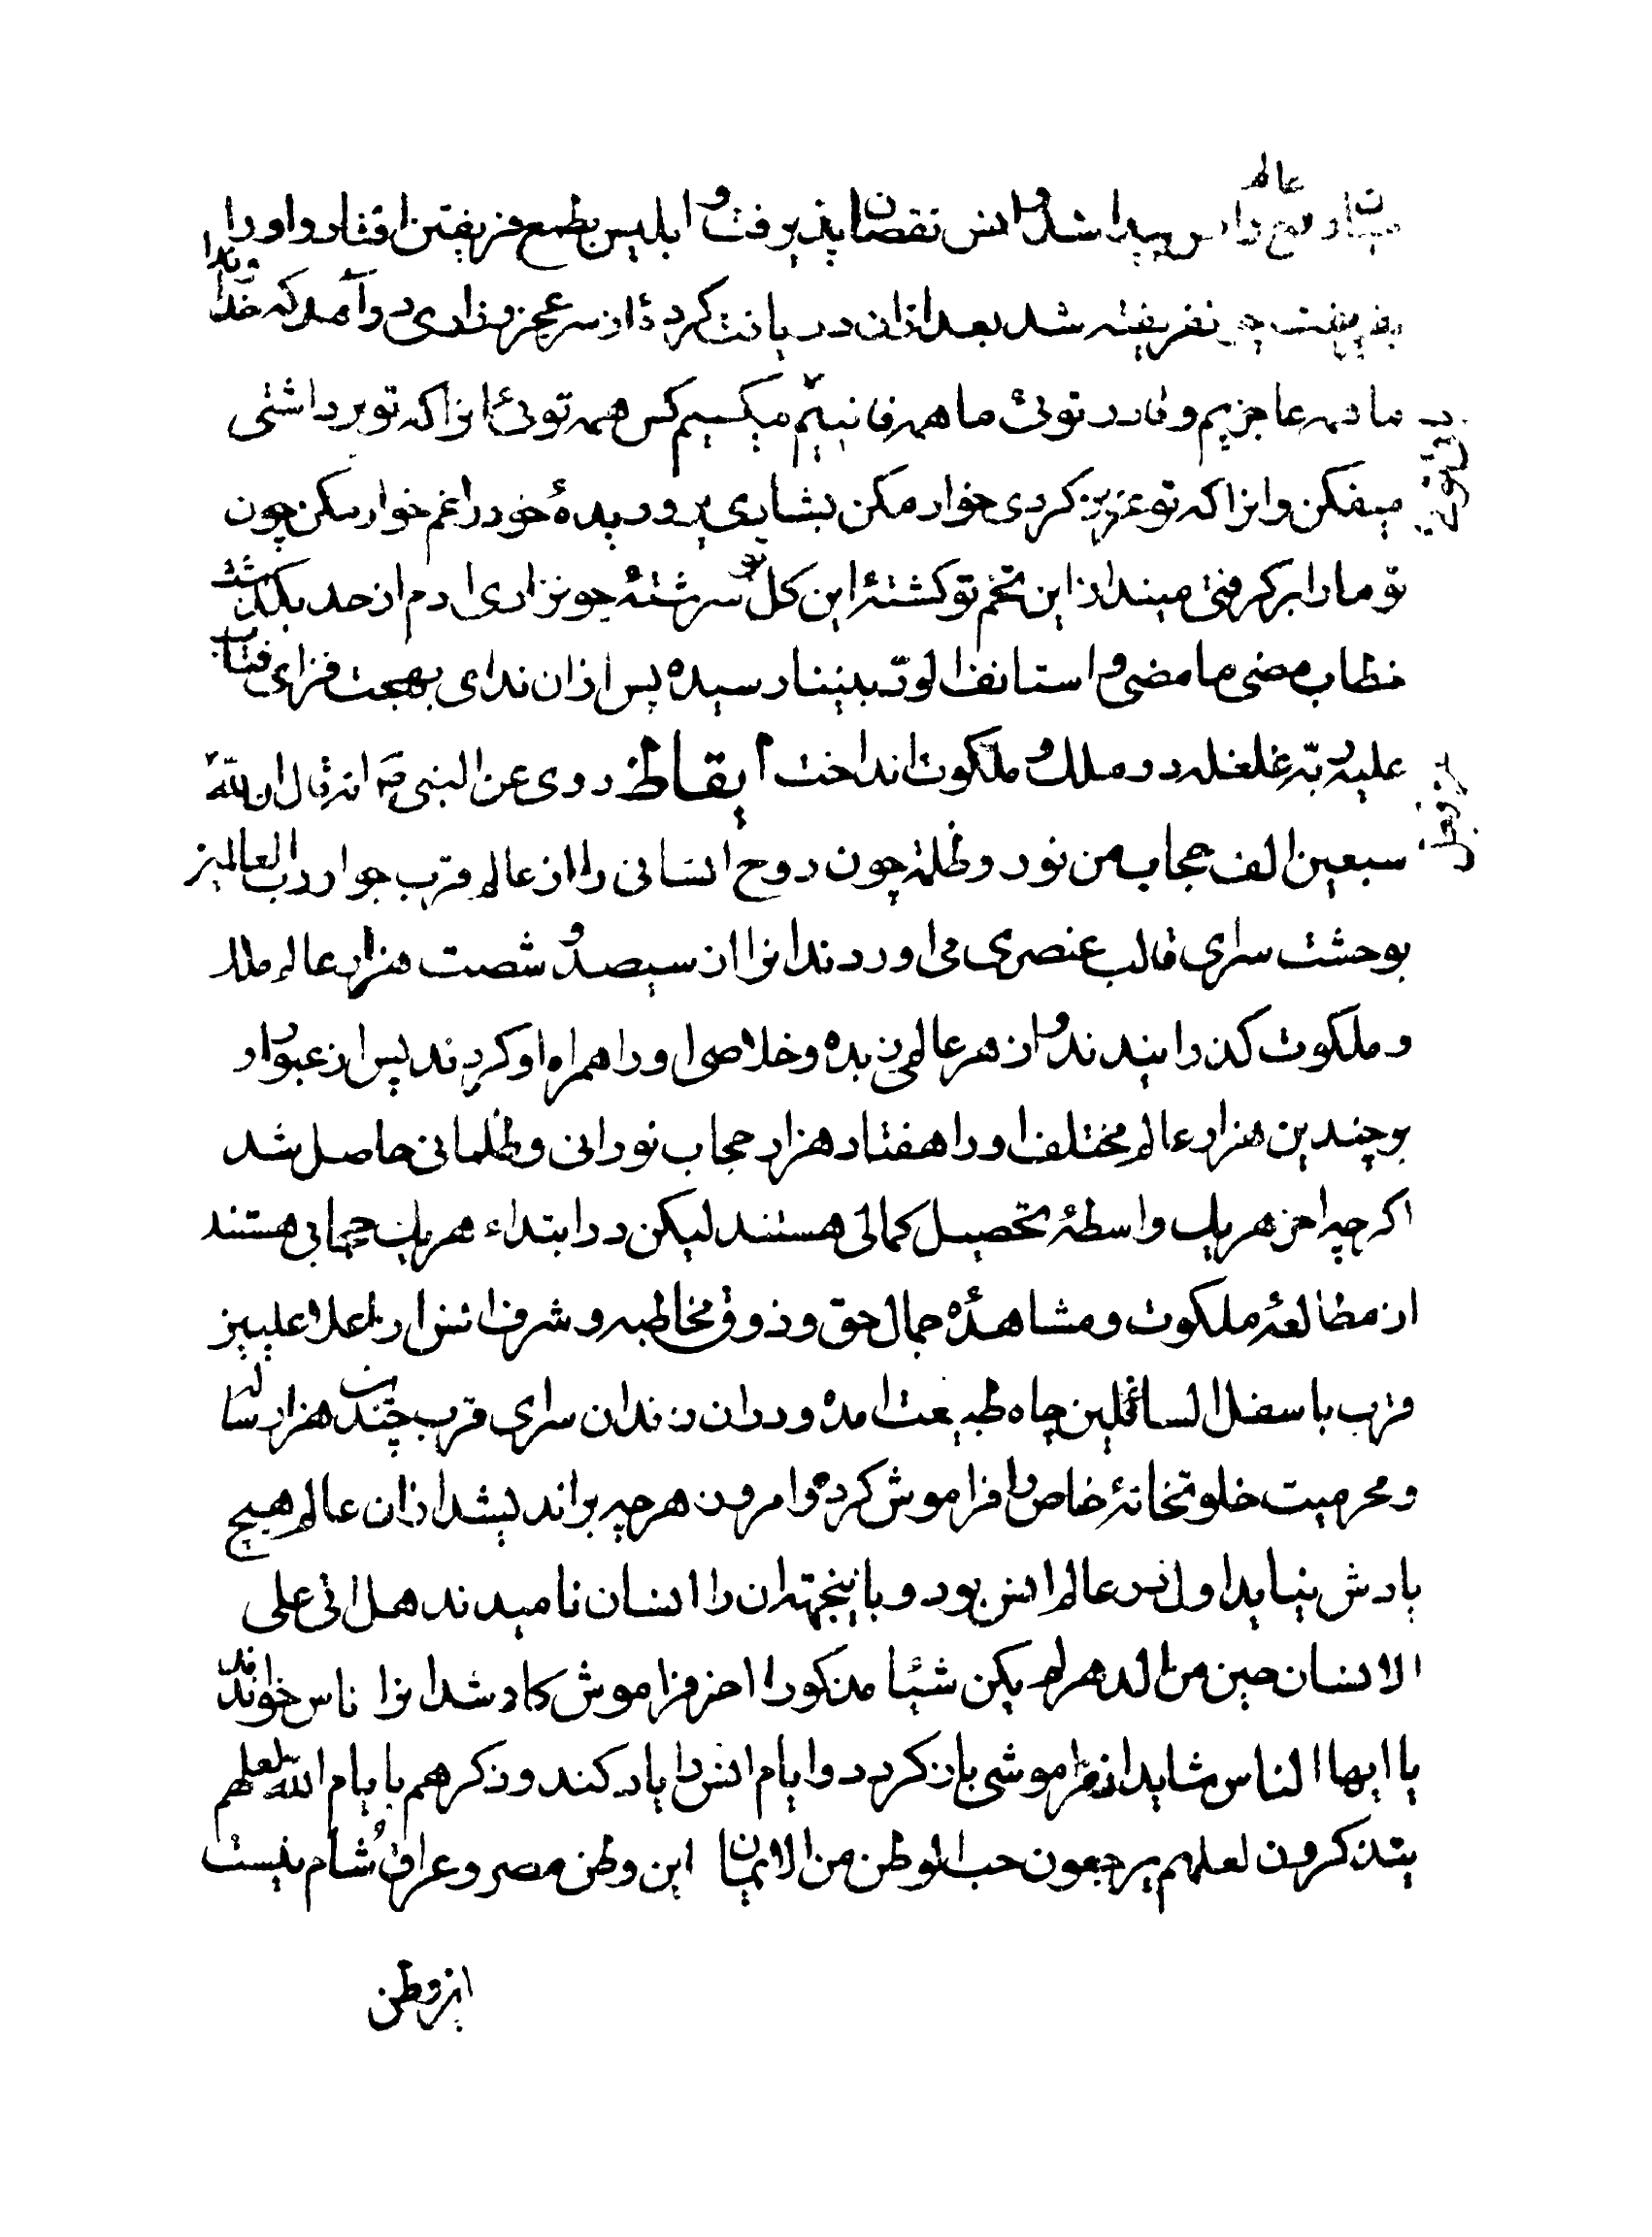 پیدا شد و انس نقصان پذیرفت و ابلیس بطمع فریفتن افتاد و او را
بفریفت چون فریفته شد بعد از آن دریافت کرد و از سر عجز و زاری درآمد که خداوندا
ما همه عاجزیم و قادر توئی ما همه فانییم میکسیم کس همه توئی انرا که تو برداشتی
میفکن و انرا که تو عزیز کردی خوار مکن بشادی پروریدهٔ خود را غم خوار مکن چون
تو ما را برگرفتی مینداز این تخم تو کشتهٔ این کل تو سرشتهٔ چو نزاری ادم از حد بگذشت
خطاب مضی ما مضی و استانف الود بیننا رسیده پس از ان ندای بهجت فزای فتاب
علیه ربه غلغله در ملک و ملکوت انداخت ایقاظ روی عن النبی ص انه قال ان لله
سبعین الف حجاب من نور و ظلمة چون روح انسانی را از عالم قرب جوار رب العالمین
بوحشت سرای قالب عنصری می اوردند انرا از سیصد و شصت هزار عالم ملک
و ملکوت کذرانیدند و از هر عالمی زبده و خلاصی او را همراه او کردند پس از عبور او
بر چندین هزار عالم مختلف او را هفتاد هزار حجاب نورانی و ظلمانی حاصل شد
اکر چه اخر هر یک واسطهٔ تحصیل کمالی هستند لیکن در ابتداء هر یک حجابی هستند
از مطالعهٔ ملکوت و مشاهدهٔ جمال حق و ذوق مخاطبه و شرف انس از اعلا علیین
قرب باسفل السافلین چاه طبیعت امده و در ان زندان سرای قرب چندین هزار ساله
و محرمیت خلوتخانهٔ خاص را فراموش کرده و امروز هر چه براندیشد از ان عالم هیچ
یادش نیاید اول در عالم انس بود و باینجهة ان را انسان نامیدند هل اتی علی
الانسان حین من الدهر لم یکن شیئا مذکورا اخر فراموش کار شد انرا ناس خواندند
یا ایها الناس شاید از فراموشی باز کردد و ایام انس را یاد کند و ذکرهم بایام الله لعلهم
یتذکرون لعلهم یرجعون حب الوطن من الایمان این وطن مصر و عراق و شام نیست
این وطن